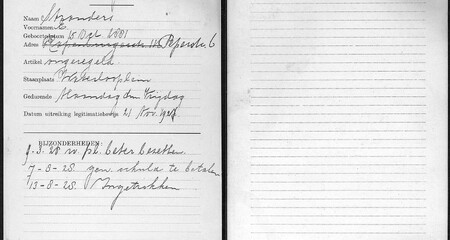 Naam Stranders
Voornamen E.
Geboortedatum 15 Oct 1881
Adres Peperstr. 6
Artikel ongeregeld
Staanplaats Waterlooplein
Gedurende Maandag t/m Vrijdag
Datum uitreiking legitimatiebewijs 21 Nov. 192
BIJZONDERHEDEN:
-3-28 w. pl. beter bezetten.
7-6-28 gen. schuld te betalen
13-8-28 Ingetrokken